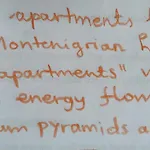 -apartments
Montenigrian
apartments"
energy flow
pyramids a